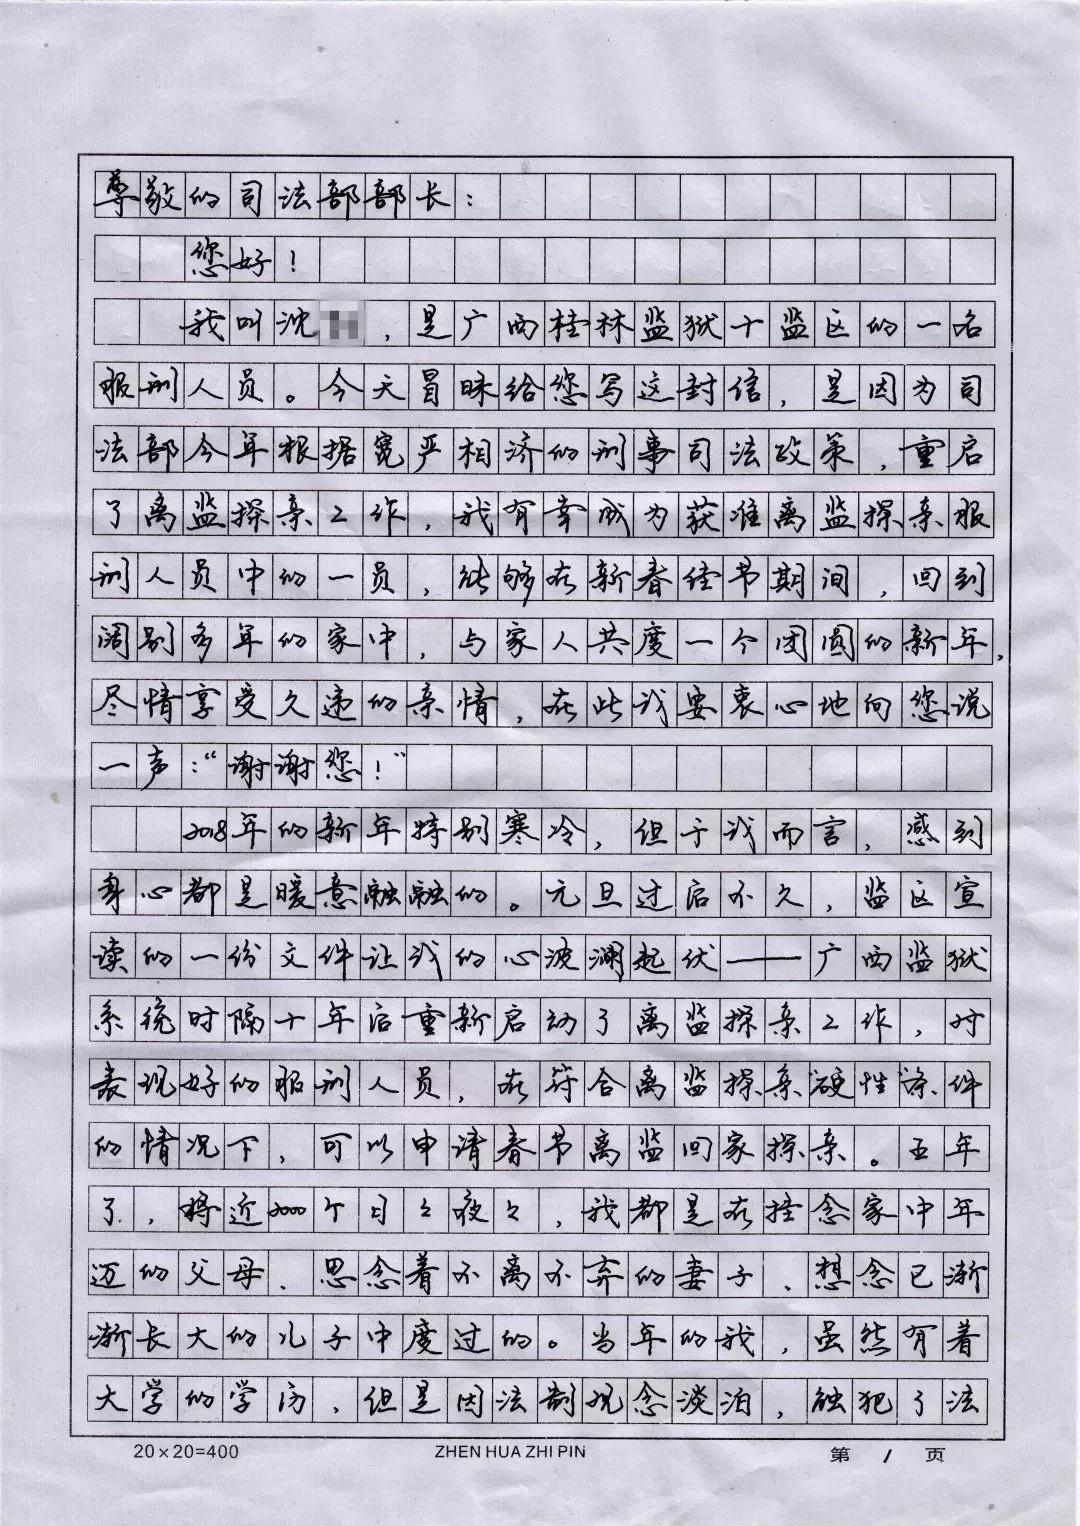 尊敬的司法部部长：
您好！
我叫沈，是广西桂林监狱十监区的一名
服刑人员。今天冒昧给您写这封信，是因为司
法部今年根据宽严相济的刑事司法政策，重启
了离监探亲工作，我有幸成为获准离监探亲服
刑人员中的一员，能够在新春佳节期间，回到
阔别多年的家中，与家人共度一个团圆的新年，
尽情享受久违的亲情，在此我要衷心地向您说
一声：“谢谢您！”
2018年的新年特别寒冷，但于我而言，感到
身心都是暖意融融的。元旦过后不久，监区宣
读的一份文件让我的心波澜起伏——广西监狱
系统时隔十年后重新启动了离监探亲工作，对
表现好的服刑人员，在符合离监探亲“硬性”条件
的情况下，可以申请春节离监回家探亲。五年
了，将近2000个日々夜々，我都是在挂念家中年
迈的父母、思念着不离不弃的妻子、想念已渐
渐长大的儿子中度过的。当年的我，虽然有着
大学的学历，但是因法制观念淡泊，触犯了法
20×20=400 ZHEN HUA ZHI PIN 第 1 页